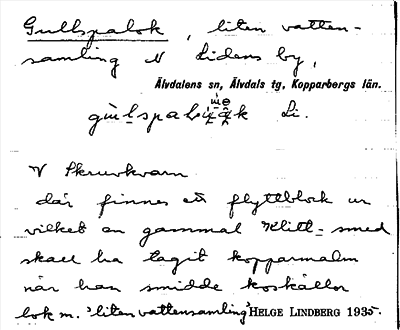 Gullspalok, liten vatten-
samling N Lidens by,
Älvdalens sn, Älvdals tg, Kopparbergs län.
Li.
N Skruvkvarn
där finnes ett flyttblock ur
vilket en gammal Klitt-smed
skall ha tagit kopparmalm
när han smidde koskällor
lok m. 'liten vattensamling' HELGE LINDBERG 1935.